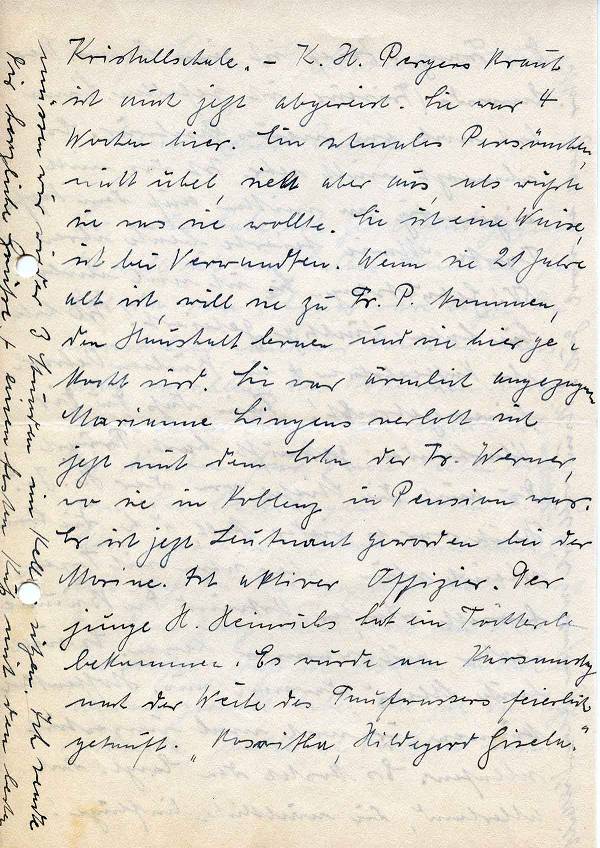 Kristallschale. – K. H. Pergers Braut
ist auch jetzt abgereist. Sie war 4
Wochen hier. Ein schmales Persönchen,
nicht übel, sieht aber aus, als wüßte
sie was sie wollte. Sie ist eine Waise,
ist bei Verwandten. Wenn sie 21 Jahre
alt ist, will sie zu Fr. P. kommen,
den Haushalt lernen und wie hier ge-
kocht wird. Sie war ärmlich angezogen
Marianne Lingens verlobt sich
jetzt mit dem Sohn der Fr. Werner,
wo sie in Koblenz in Pension war.
Er ist jetzt Leutnant geworden bei der
Marine. Ist aktiver Offizier. Der
junge H. Heinrichs hat ein Töchterle
bekommen. Es wurde am Karsamstag
nach der Weihe des Taufwassers feierlich
getauft. „Roswitha, Hildegard Gisela."
müssen wir wieder 3 Stunden im Keller sitzen. Ich sende
Dir herzliche Grüße + einen festen Kuß mit den besten